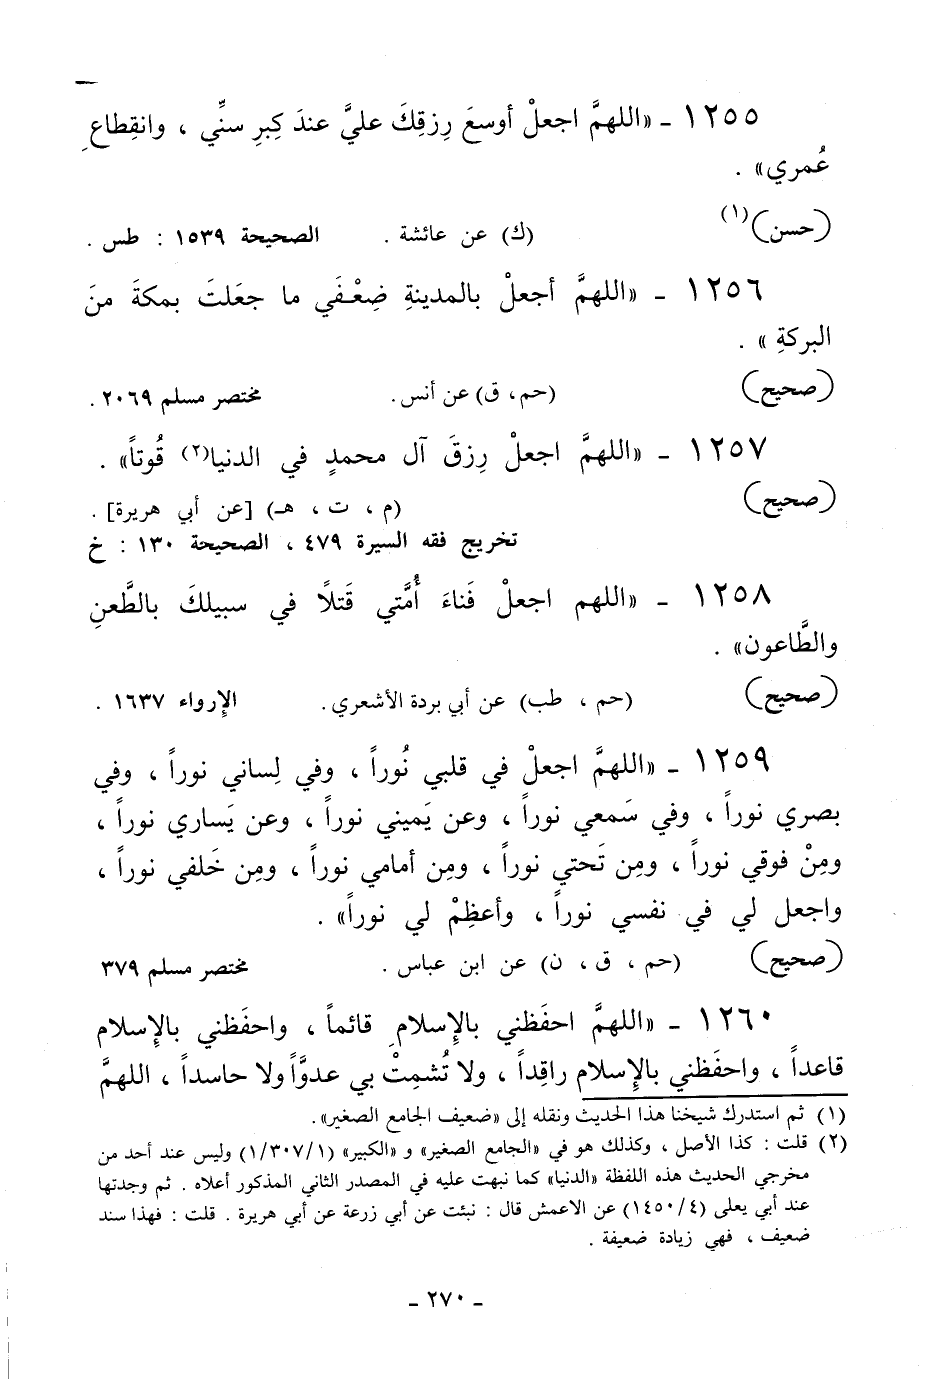 ١٢٥٥ ـ «اللهمَّ اجعلْ أوسعَ رِزقِكَ عليَّ عندَ كِبرِ سنِّي ، وانقِطاعِ
عُمري» .
(حسن)(١) (ك) عن عائشة . الصحيحة ١٥٣٩ : طس .
١٢٥٦ ـ «اللهمَّ أجعلْ بالمدينةِ ضِعْفَي ما جعَلتَ بمكةَ منَ
البركةِ» .
(صحيح) (حم، ق) عن أنس. مختصر مسلم ٢٠٦٩ .
١٢٥٧ ـ «اللهمَّ اجعلْ رِزقَ آل محمدٍ في الدنيا(٢) قُوتاً» .
(صحيح) (م ، ت ، هـ) [عن أبي هريرة] .
تخريج فقه السيرة ٤٧٩ ، الصحيحة ١٣٠ : خ
١٢٥٨ ـ «اللهم اجعلْ فَناءَ أُمَّتي قَتلًا في سبيلكَ بالطَّعنِ
والطَّاعون» .
(صحيح) (حم ، طب) عن أبي بردة الأشعري . الإرواء ١٦٣٧ .
١٢٥٩ ـ «اللهمَّ اجعلْ في قلبي نُوراً ، وفي لِساني نوراً ، وفي
بصري نوراً ، وفي سَمعي نوراً ، وعن يَميني نوراً ، وعن يَساري نوراً ،
ومِنْ فوقي نوراً ، ومِن تَحتي نوراً ، ومِن أمامي نوراً ، ومِن خَلفي نوراً ،
واجعل لي في نفسي نوراً ، وأعظِمْ لي نوراً» .
(صحيح) (حم ، ق ، ن) عن ابن عباس . مختصر مسلم ٣٧٩
١٢٦٠ ـ «اللهمَّ احفَظني بالإِسلامِ قائماً ، واحفَظني بالإِسلام
قاعداً ، واحفَظني بالإِسلام راقِداً ، ولا تُشمِتْ بي عدوَّاً ولا حاسداً ، اللهمَّ
(١) ثم استدرك شيخنا هذا الحديث ونقله إلى «ضعيف الجامع الصغير».
(٢) قلت : كذا الأصل ، وكذلك هو في «الجامع الصغير» و «الكبير» (١/٣٠٧/١) وليس عند أحد من
مخرجي الحديث هذه اللفظة «الدنيا» كما نبهت عليه في المصدر الثاني المذكور أعلاه . ثم وجدتها
عند أبي يعلى (١٤٥٠/٤) عن الاعمش قال : نبئت عن أبي زرعة عن أبي هريرة . قلت : فهذا سند
ضعيف ، فهي زيادة ضعيفة .
ـ ٢٧٠ ـ